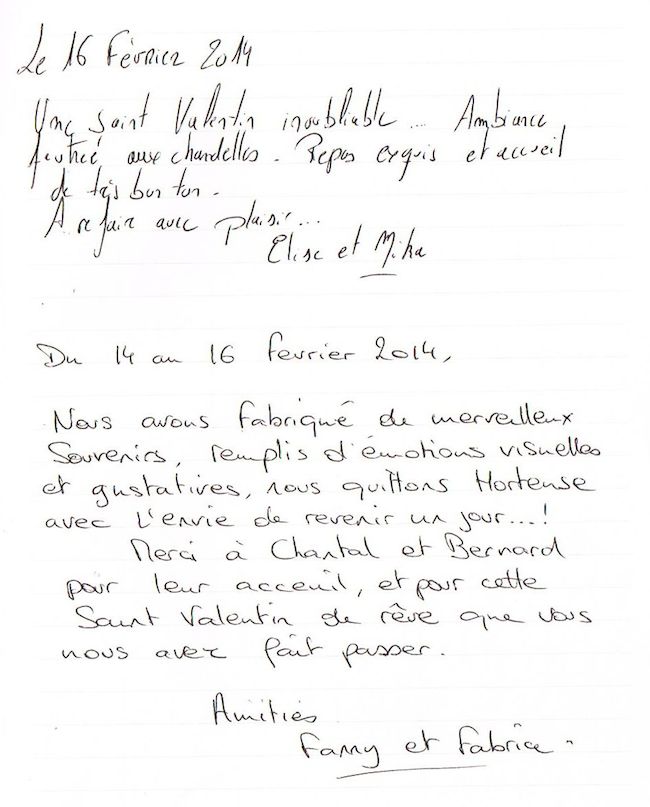 Le 16 Février 2014
Une Saint Valentin inoubliable... Ambiance
feutrée aux chandelles. Repas exquis et accueil
de très bon ton.
A refaire avec plaisir...
Elise et Mika
Du 14 au 16 fevrier 2014,
Nous avons fabriqué de merveilleux
Souvenirs, remplis d'émotions visuelles
et gustatives, nous quittons Hortense
avec l'envie de revenir un jour...!
Merci à Chantal et Bernard
pour leur acceuil, et pour cette
Saint Valentin de rêve que vous
nous avez fait passer.
Amitiés
Fanny et Fabrice.